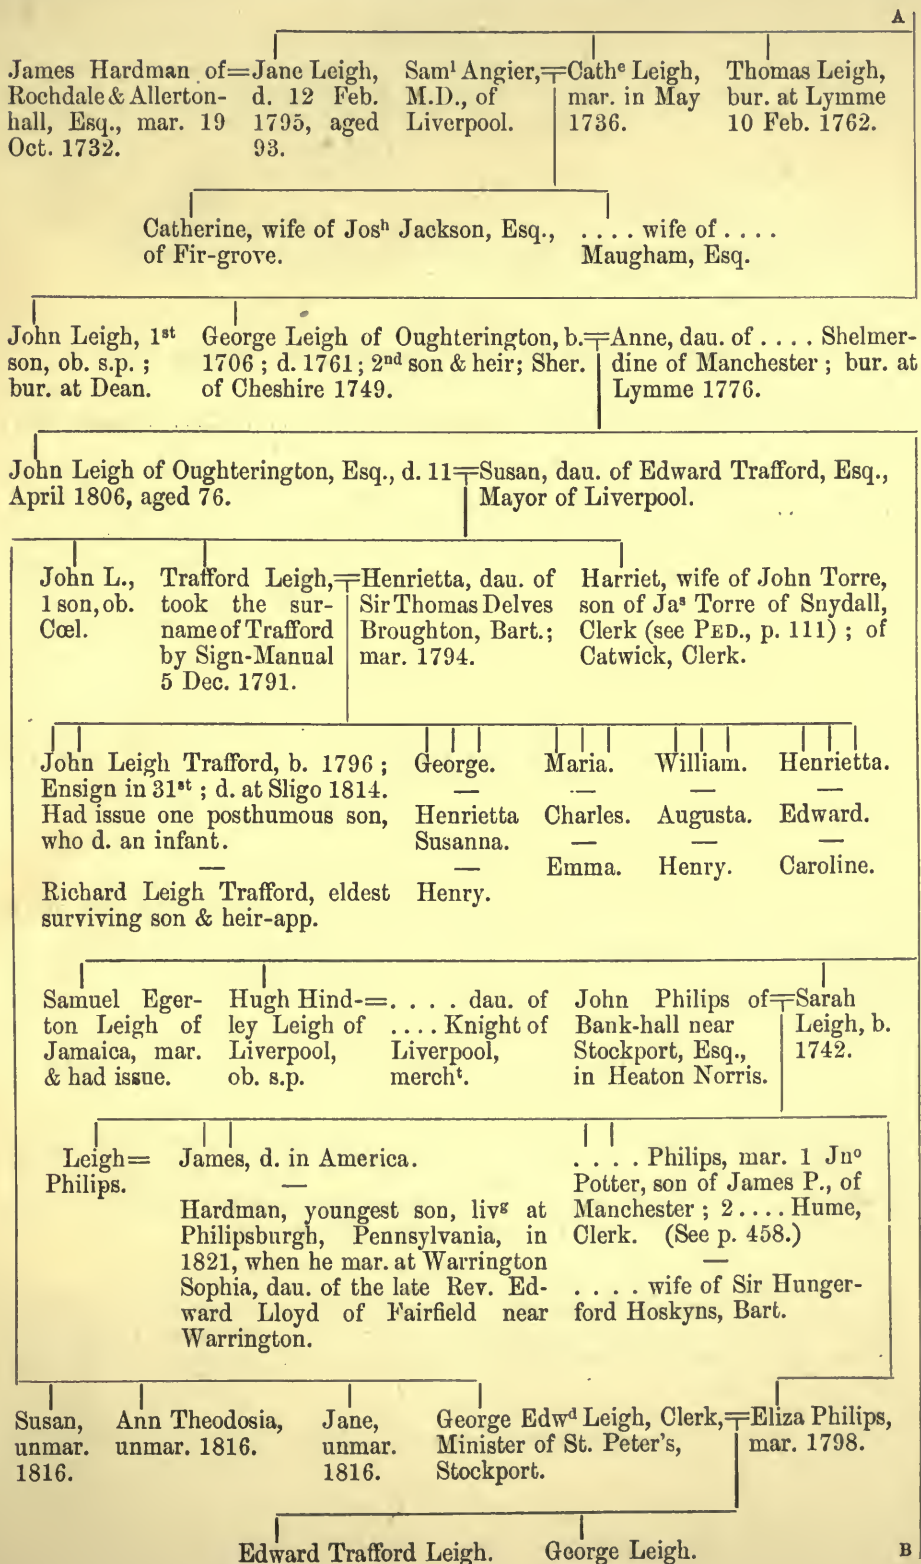 A
James Hardman of=Jane Leigh,
Rochdale & Allerton- d. 12 Feb.
hall, Esq., mar. 19 1795, aged
Oct. 1732. 93.
Samˡ Angier,=Cathᵉ Leigh,
M.D., of mar. in May
Liverpool. 1736.
Thomas Leigh,
bur. at Lymme
10 Feb. 1762.
Catherine, wife of Josʰ Jackson, Esq.,
of Fir-grove.
. . . . wife of . . . .
Maugham, Esq.
John Leigh, 1ˢᵗ
son, ob. s.p. ;
bur. at Dean.
George Leigh of Oughterington, b.=Anne, dau. of . . . . Shelmer-
1706 ; d. 1761 ; 2ⁿᵈ son & heir; Sher. dine of Manchester ; bur. at
of Cheshire 1749. Lymme 1776.
John Leigh of Oughterington, Esq., d. 11=Susan, dau. of Edward Trafford, Esq.,
April 1806, aged 76. Mayor of Liverpool.
John L.,
1 son, ob.
Cœl.
Trafford Leigh,=Henrietta, dau. of
took the sur- Sir Thomas Delves
name of Trafford Broughton, Bart.;
by Sign-Manual mar. 1794.
5 Dec. 1791.
Harriet, wife of John Torre,
son of Jaˢ Torre of Snydall,
Clerk (see PED., p. 111) ; of
Catwick, Clerk.
John Leigh Trafford, b. 1796 ;
Ensign in 31ˢᵗ ; d. at Sligo 1814.
Had issue one posthumous son,
who d. an infant.
—
Richard Leigh Trafford, eldest
surviving son & heir-app.
George.
—
Henrietta
Susanna.
—
Henry.
Maria.
—
Charles.
—
Emma.
William.
—
Augusta.
—
Henry.
Henrietta.
—
Edward.
—
Caroline.
Samuel Eger-
ton Leigh of
Jamaica, mar.
& had issue.
Hugh Hind-=. . . . dau. of
ley Leigh of . . . . Knight of
Liverpool, Liverpool,
ob. s.p. merchᵗ.
John Philips of=Sarah
Bank-hall near Leigh, b.
Stockport, Esq., 1742.
in Heaton Norris.
Leigh=
Philips.
James, d. in America.
—
Hardman, youngest son, livᵍ at
Philipsburgh, Pennsylvania, in
1821, when he mar. at Warrington
Sophia, dau. of the late Rev. Ed-
ward Lloyd of Fairfield near
Warrington.
. . . . Philips, mar. 1 Jnᵒ
Potter, son of James P., of
Manchester ; 2 . . . . Hume,
Clerk. (See p. 458.)
—
. . . . wife of Sir Hunger-
ford Hoskyns, Bart.
Susan,
unmar.
1816.
Ann Theodosia,
unmar. 1816.
Jane,
unmar.
1816.
George Edwᵈ Leigh, Clerk,=Eliza Philips,
Minister of St. Peter's, mar. 1798.
Stockport.
Edward Trafford Leigh. George Leigh.
B